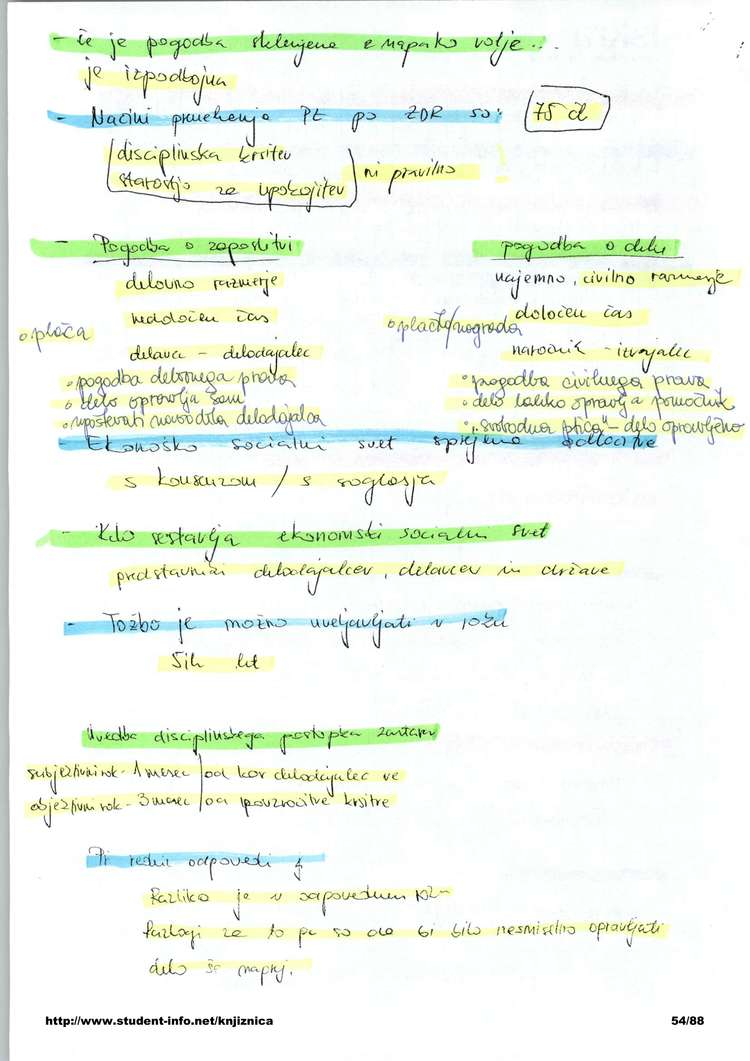 - če je pogodba sklenjena z napako volje...
je izpodbojna
- Načini prenehanja PZ po ZDR so: 75 čl
disciplinska kršitev
starostjo za upokojitev
ni pravilno
- Pogodba o zaposlitvi
pogodba o delu
delovno razmerje
najemno, civilno razmerje
nedoločen čas
določen čas
o plača
o plačilo/nagrada
delavec - delodajalec
naročnik - izvajalec
o pogodba delovnega prava
o pogodba civilnega prava
o delo opravlja sam
o delo lahko opravlja pomočnik
o upoštevati navodila delodajalca
o "svobodna ptica" - delo opravljeno
- Ekonosko socialni svet sprejema odločitve
s konsenzom / s soglasja
- Kdo sestavlja ekonomski socialni svet
predstavniki delodajalcev, delavcev in države
- Tožbo je možno uveljavljati v roku
5ih let
Uvedba disciplinskega postopka zastara
subjektivni rok - 1 mesec od kar delodajalec ve
objektivni rok - 3 mesec od povzročitve kršitve
Pri redni odpovedi
Razlika je v odpovednem
Razlogi za to pa so da bi bilo nesmiselno opravljati
delo še naprej.
http://www.student-info.net/knjiznica
54/88